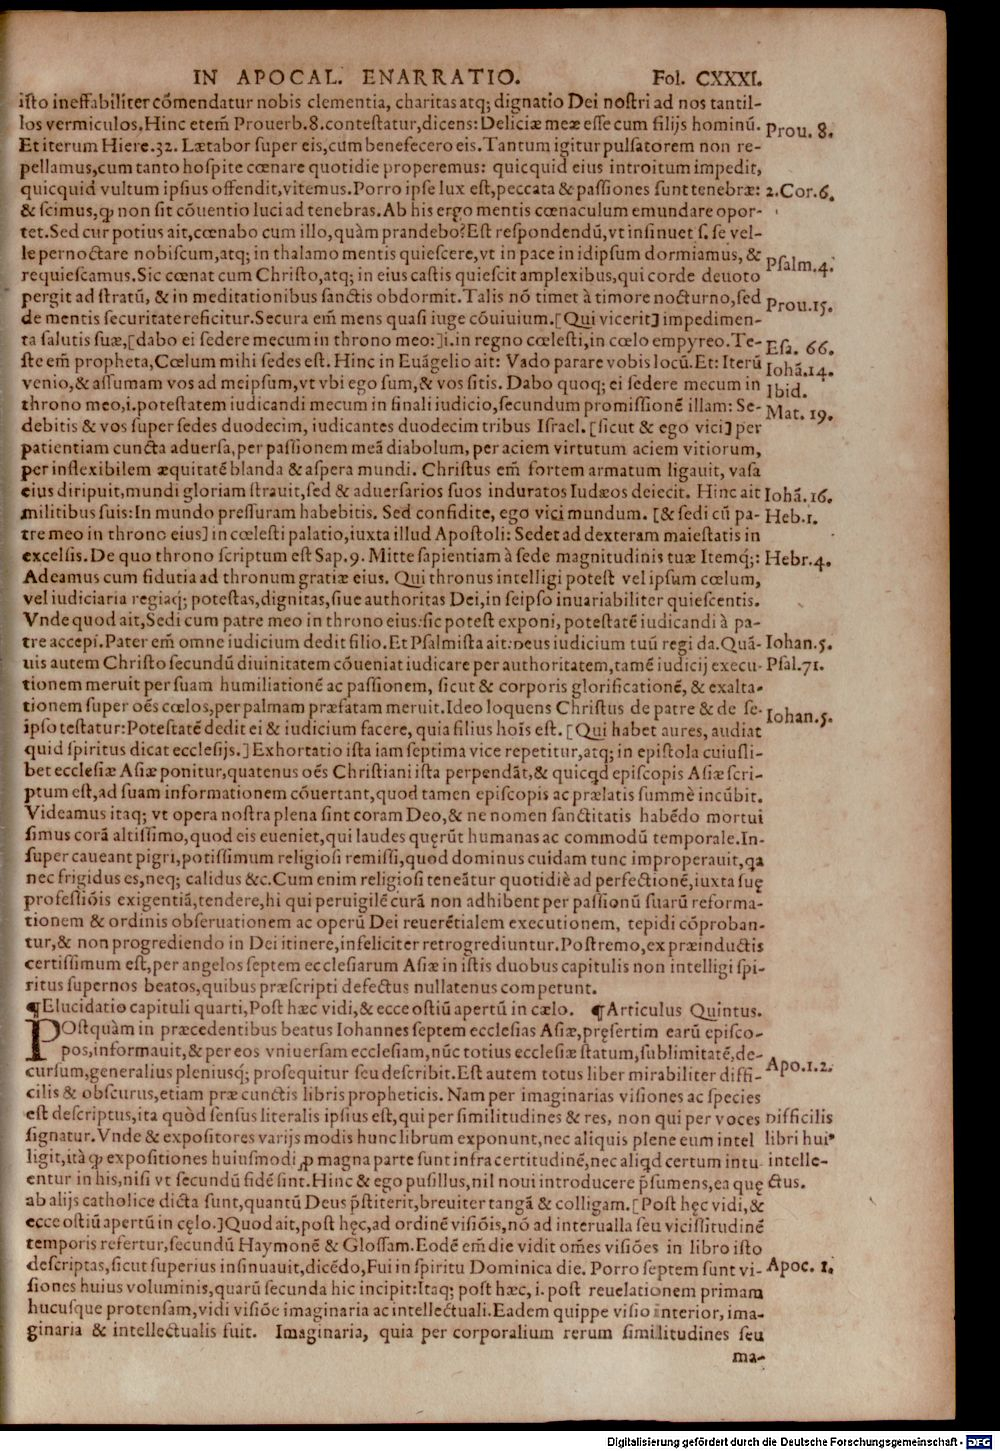 IN APOCAL. ENARRATIO. Fol. CXXXI.
isto ineffabiliter cõmendatur nobis clementia, charitas atq; dignatio Dei nostri ad nos tantil-
los vermiculos. Hinc etem̃ Prouerb. 8. contestatur, dicens: Deliciæ meæ esse cum filijs hominũ. Prou. 8.
Et iterum Hiere. 32. Lætabor super eis, cùm benefecero eis. Tantum igitur pulsatorem non re-
pellamus, cum tanto hospite cœnare quotidie properemus: quicquid eius introitum impedit,
quicquid vultum ipsius offendit, vitemus. Porro ipse lux est, peccata & passiones sunt tenebræ: 2. Cor. 6.
& scimus, ꝙ non sit cõuentio luci ad tenebras. Ab his ergo mentis cœnaculum emundare opor-
tet. Sed cur potius ait, cœnabo cum illo, quàm prandebo? Est respondendũ, vt insinuet s. se vel-
le pernoctare nobiscum, atq; in thalamo mentis quiescere, vt in pace in idipsum dormiamus, & Psalm. 4.
requiescamus. Sic cœnat cum Christo, atq; in eius castis quiescit amplexibus, qui corde deuoto
pergit ad stratũ, & in meditationibus sanctis obdormit. Talis nõ timet à timore nocturno, sed Prou. 15.
de mentis securitate reficitur. Secura em̃ mens quasi iuge cõuiuium. [Qui vicerit] impedimen-
ta salutis suæ, [dabo ei sedere mecum in throno meo:] i. in regno cœlesti, in cœlo empyreo. Te- Esa. 66.
ste em̃ propheta, Cœlum mihi sedes est. Hinc in Euãgelio ait: Vado parare vobis locũ. Et: Iterũ Iohã. 14.
venio, & assumam vos ad meipsum, vt vbi ego sum, & vos sitis. Dabo quoq; ei sedere mecum in Ibid.
throno meo, i. potestatem iudicandi mecum in finali iudicio, secundum promissionẽ illam: Se- Mat. 19.
debitis & vos super sedes duodecim, iudicantes duodecim tribus Israel. [sicut & ego vici] per
patientiam cuncta aduersa, per passionem meã diabolum, per aciem virtutum aciem vitiorum,
per inflexibilem æquitatẽ blanda & aspera mundi. Christus em̃ fortem armatum ligauit, vasa
eius diripuit, mundi gloriam strauit, sed & aduersarios suos induratos Iudæos deiecit. Hinc ait Iohã. 16.
militibus suis: In mundo pressuram habebitis. Sed confidite, ego vici mundum. [& sedi cũ pa- Heb. 1.
tre meo in throno eius] in cœlesti palatio, iuxta illud Apostoli: Sedet ad dexteram maiestatis in
excelsis. De quo throno scriptum est Sap. 9. Mitte sapientiam à sede magnitudinis tuæ Itemq;: Hebr. 4.
Adeamus cum fidutia ad thronum gratiæ eius. Qui thronus intelligi potest vel ipsum cœlum,
vel iudiciaria regiaq; potestas, dignitas, siue authoritas Dei, in seipso inuariabiliter quiescentis.
Vnde quod ait, Sedi cum patre meo in throno eius: sic potest exponi, potestatẽ iudicandi à pa-
tre accepi. Pater em̃ omne iudicium dedit filio. Et Psalmista ait: Deus iudicium tuũ regi da. Quã- Iohan. 5.
uis autem Christo secundũ diuinitatem cõueniat iudicare per authoritatem, tamẽ iudicij execu- Psal. 71.
tionem meruit per suam humiliationẽ ac passionem, sicut & corporis glorificationẽ, & exalta-
tionem super oẽs cœlos, per palmam præfatam meruit. Ideo loquens Christus de patre & de se- Iohan. 5.
ipso testatur: Potestatẽ dedit ei & iudicium facere, quia filius hoĩs est. [Qui habet aures, audiat
quid spiritus dicat ecclesijs.] Exhortatio ista iam septima vice repetitur, atq; in epistola cuiusli-
bet ecclesiæ Asiæ ponitur, quatenus oẽs Christiani ista perpendãt, & quicqd episcopis Asiæ scri-
ptum est, ad suam informationem cõuertant, quod tamen episcopis ac prælatis summè incũbit.
Videamus itaq; vt opera nostra plena sint coram Deo, & ne nomen sanctitatis habẽdo mortui
simus corã altissimo, quod eis eueniet, qui laudes quęrũt humanas ac commodũ temporale. In-
super caueant pigri, potissimum religiosi remissi, quod dominus cuidam tunc improperauit, qa
nec frigidus es, neq; calidus &c. Cum enim religiosi teneãtur quotidiè ad perfectionẽ, iuxta suę
professiõis exigentiã, tendere, hi qui peruigilẽ curã non adhibent per passionũ suarũ reforma-
tionem & ordinis obseruationem ac operũ Dei reuerẽtialem executionem, tepidi cõproban-
tur, & non progrediendo in Dei itinere, infeliciter retrogrediuntur. Postremo, ex præinductis
certissimum est, per angelos septem ecclesiarum Asiæ in istis duobus capitulis non intelligi spi-
ritus supernos beatos, quibus præscripti defectus nullatenus competunt.
¶Elucidatio capituli quarti, Post hæc vidi, & ecce ostiũ apertũ in cælo. ¶Articulus Quintus.
POstquàm in præcedentibus beatus Iohannes septem ecclesias Asiæ, pręsertim earũ episco-
pos, informauit, & per eos vniuersam ecclesiam, nũc totius ecclesiæ statum, sublimitatẽ, de- Apo. 1. 2.
cursum, generalius pleniusq; prosequitur seu describit. Est autem totus liber mirabiliter diffi-
cilis & obscurus, etiam præ cunctis libris propheticis. Nam per imaginarias visiones ac species
est descriptus, ita quòd sensus literalis ipsius est, qui per similitudines & res, non qui per voces Difficilis
signatur. Vnde & expositores varijs modis hunc librum exponunt, nec aliquis plene eum intel libri huiꝰ
ligit, ità ꝙ expositiones huiusmodi ꝓ magna parte sunt infra certitudinẽ, nec aliqd certum intu- intelle-
entur in his, nisi vt secundũ fidẽ sint. Hinc & ego pusillus, nil noui introducere p̃sumens, ea quę ctus.
ab alijs catholice dicta sunt, quantũ Deus p̃stiterit, breuiter tangã & colligam. [Post hęc vidi, &
ecce ostiũ apertũ in cęlo.] Quod ait, post hęc, ad ordinẽ visiõis, nõ ad interualla seu vicissitudinẽ
temporis refertur, secundũ Haymonẽ & Glossam. Eodẽ em̃ die vidit om̃es visiões in libro isto
descriptas, sicut superius insinuauit, dicẽdo, Fui in spiritu Dominica die. Porro septem sunt vi- Apoc. 1.
siones huius voluminis, quarũ secunda hic incipit: Itaq; post hæc, i. post reuelationem primam
hucusque protensam, vidi visiõe imaginaria ac intellectuali. Eadem quippe visio interior, ima-
ginaria & intellectualis fuit. Imaginaria, quia per corporalium rerum similitudines seu
ma-
Digitalisierung gefördert durch die Deutsche Forschungsgemeinschaft - DFG